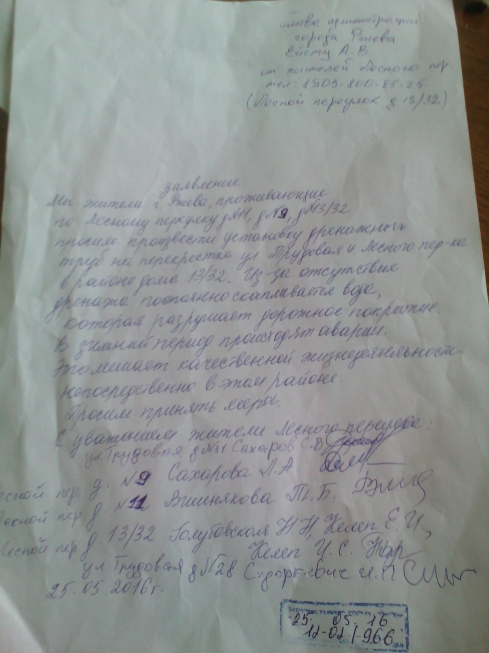 Главе администрации
города Ржева
Ейсту А.В.
от жителей Лесного пер.
тел: 8909-800-85-25
(Лесной переулок д 13/32)
заявление.
Мы жители г. Ржева, проживающие
по Лесному переулку д№11, д№9, д№13/32
просим произвести установку дренажных
труб на перекрестке ул Трудовая и Лесного пер-ка
в районе дома 13/32. Из-за отсутствия
дренажа постоянно скапливается вода,
которая разрушает дорожное покрытие.
В зимний период происходят аварии.
Это мешает качественной жизнедеятельности
непосредственно в этом районе.
Просим принять меры.
С уважением жители Лесного переулка:
ул Трудовая д №31 Сахаров С.В.
Лесной пер. д. №9 Сахарова Л.А
Лесной пер д №11 Вишнякова Т.Б.
Лесной пер д 13/32 Голубовская Н Н, Келеп Е.И,
Келеп И.С.
ул Трудовая д №28 И.П
25.05.2016г.
25 05 16
12-02/966